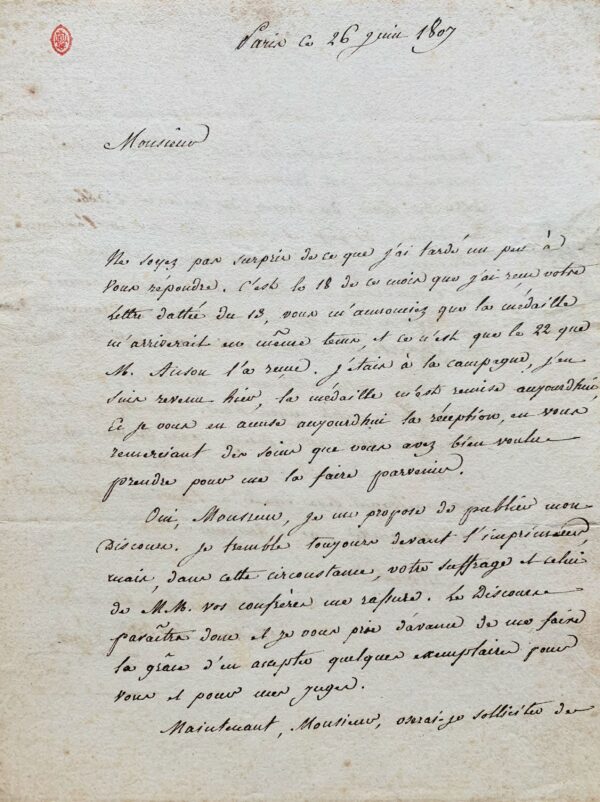 Paris ce 26 juin 1807
Monsieur
Ne soyez pas surpris de ce que j'ai tardé un peu à
vous répondre. C'est le 18 de ce mois que j'ai reçu votre
lettre dattée du 13, vous m'annonciez que la médaille
m'arriverait en même tems, et ce n'est que le 22 que
M. Auson l'a reçue. j'étais à la campagne, j'en
suis revenu hier, la médaille m'est remise aujourdhui,
Et je vous en accuse aujourdhui la réception, en vous
remerciant des soins que vous avez bien voulu
prendre pour me la faire parvenir.
Oui, Monsieur, je me propose de publier mon
Discours. Je tremble toujours devant l'imprimeur,
mais, dans cette circonstance, votre suffrage et celui
de MM. vos confrères me rassure. Le Discours
paraîtra donc et je vous prie d'avance de me faire
la grâce d'en accepter quelques exemplaires pour
vous et pour mes juges.
Maintenant, Monsieur, oserai-je solliciter de